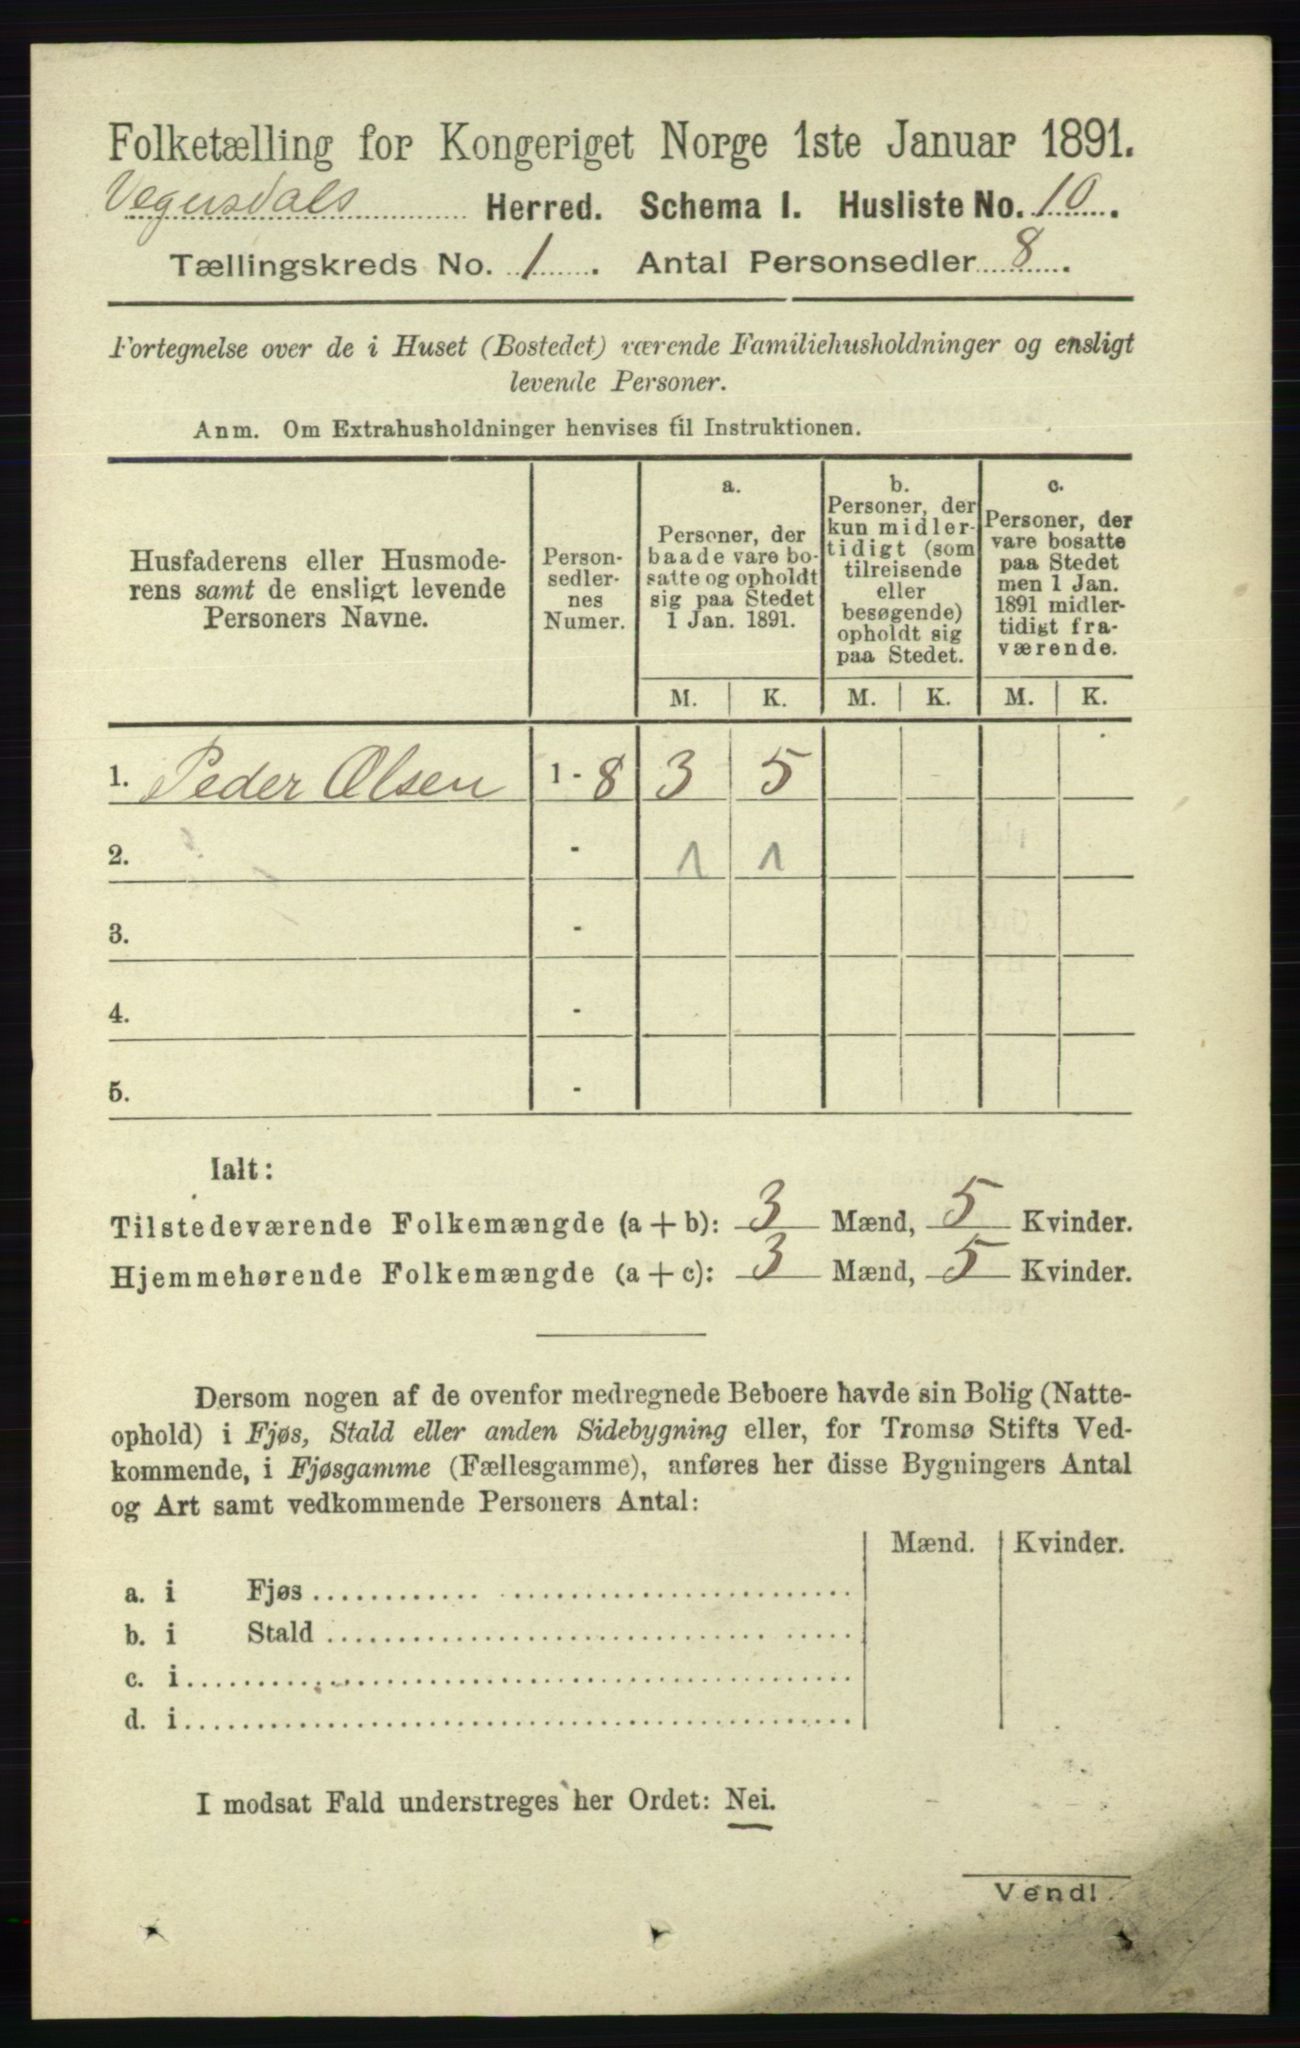 Folketælling for Kongeriget Norge 1ste Januar 1891.
Vegusdals Herred. Schema I. Husliste No. 10.
Tællingskreds No. 1. Antal Personsedler 8.
Fortegnelse over de i Huset (Bostedet) værende Familiehusholdninger og ensligt
levende Personer.
Anm. Om Extrahusholdninger henvises til Instruktionen.
Husfaderens eller Husmode-
rens samt de ensligt levende
Personers Navne.
Person-
sedler-
nes
Numer.
a.
Personer, der
baade vare bo-
satte og opholdt
sig paa Stedet
1 Jan. 1891.
b.
Personer, der
kun midler-
tidigt (som
tilreisende
eller
besøgende)
opholdt sig
paa Stedet.
c.
Personer, der
vare bosatte
paa Stedet
men 1 Jan.
1891 midler-
tidigt fra-
værende.
M. K. M. K. M. K.
1. Peder Olsen 1 - 8 3 5
2. - 1 1
3. -
4. -
5. -
Ialt:
Tilstedeværende Folkemængde (a + b): 3 Mænd, 5 Kvinder.
Hjemmehørende Folkemængde (a + c): 3 Mænd, 5 Kvinder.
Dersom nogen af de ovenfor medregnede Beboere havde sin Bolig (Natte-
ophold) i Fjøs, Stald eller anden Sidebygning eller, for Tromsø Stifts Ved-
kommende, i Fjøsgamme (Fællesgamme), anføres her disse Bygningers Antal
og Art samt vedkommende Personers Antal:
Mænd. Kvinder.
a. i Fjøs
b. i Stald
c. i
d. i
I modsat Fald understreges her Ordet: Nei.
Vend!